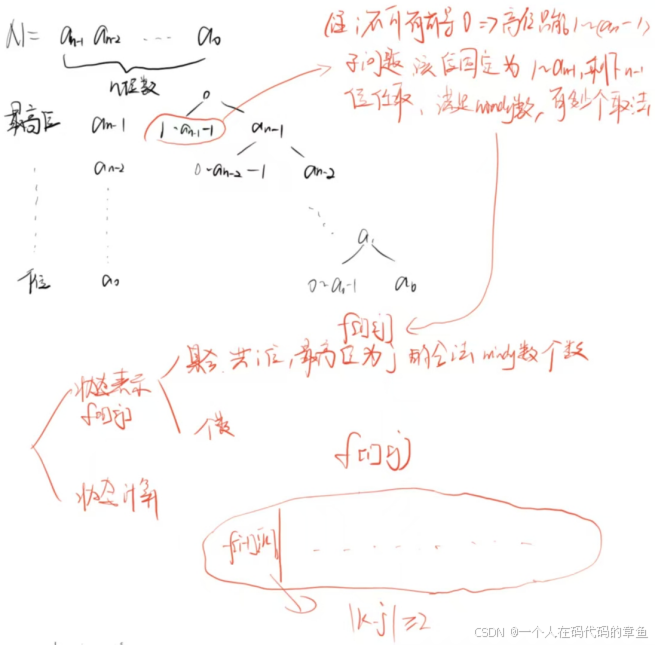 N = aₙ₋₁ aₙ₋₂ ⋯ a₀
n位数
(注:不可有前导0 => 高位只能1~(aₙ-1)
子问题 该位固定为1~aₙ-1,剩下n-1
位任取,满足windy数,有多少个取法
0
最高位 aₙ₋₁ 1~aₙ₋₁-1 aₙ₋₁
aₙ₋₂ 0~aₙ₋₂-1 aₙ₋₂
a₁
a₀ 0~a₁-1 a₀
f[i][j]
集合 共i位,最高位为j的合法windy数个数
状态表示
f[i][j]
个数
f[i][j]
状态计算
f[i-1][k]
|k-j|≥2
CSDN @一个人在码代码的章鱼